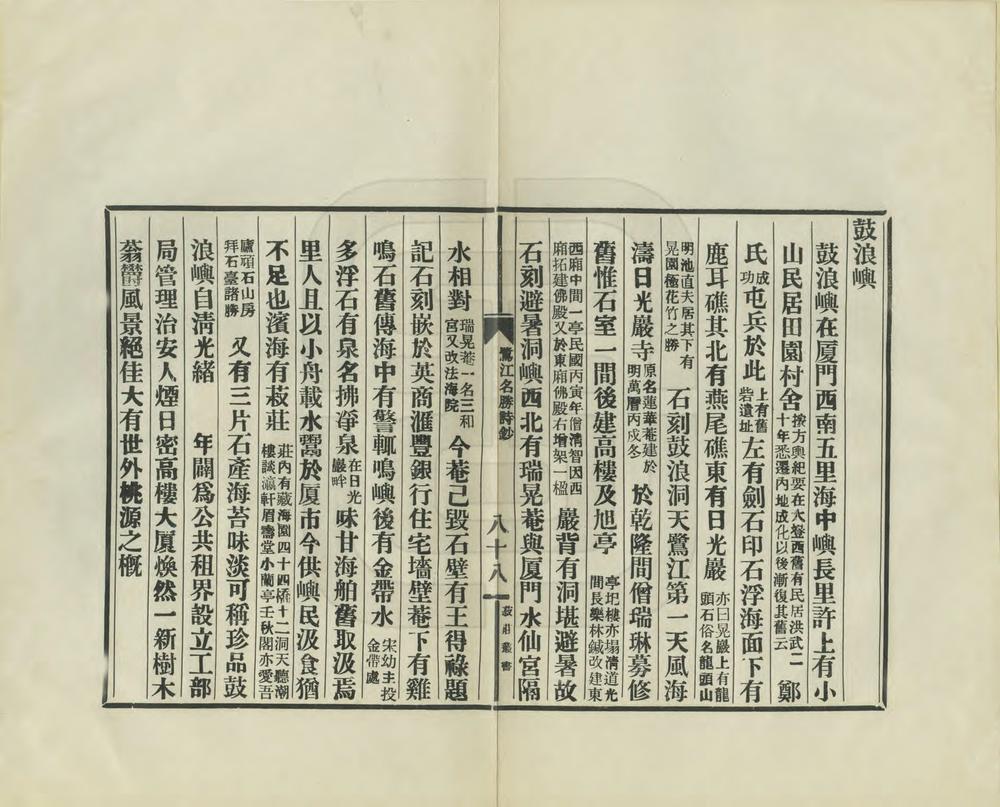 鼓浪嶼
鼓浪嶼在厦門西南五里海中嶼長里許上有小
山民居田園村舍按方輿紀要在大嶝西舊有民居洪武二十年悉遷內地成化以後漸復其舊云鄭
氏成功屯兵於此上有舊砦遺址左有劍石印石浮海面下有
鹿耳礁其北有燕尾礁東有日光巖亦曰晃巖上有龍頭石俗名龍頭山
明池直夫居其下有晃園極花竹之勝石刻鼓浪洞天鷺江第一天風海
濤日光巖寺原名蓮華菴建於明萬曆丙戌冬於乾隆間僧瑞琳募修
舊惟石室一間後建高樓及旭亭亭圯樓亦塌清道光間長樂林鍼改建東
西廂中間一亭民國丙寅年僧清智因西廂拓建佛殿又於東廂佛殿右增架一楹巖背有洞堪避暑故
石刻避暑洞嶼西北有瑞晃菴與厦門水仙宮隔
鷺江名勝詩鈔
八十八
菽莊叢書
水相對瑞晃菴一名三和宮又改法海院今菴已毀石壁有王得祿題
記石刻嵌於英商滙豐銀行住宅墻壁菴下有雞
鳴石舊傳海中有警輒鳴嶼後有金帶水宋幼主投金帶處
多浮石有泉名拂淨泉在日光巖畔味甘海舶舊取汲焉
里人且以小舟載水鬻於厦市今供嶼民汲食猶
不足也濱海有菽莊莊內有藏海園四十四橋十二洞天聽潮樓談瀛軒眉壽堂小蘭亭壬秋閣亦愛吾
廬頑石山房拜石臺諸勝又有三片石產海苔味淡可稱珍品鼓
浪嶼自淸光緖 年闢爲公共租界設立工部
局管理治安人煙日密高樓大厦煥然一新樹木
蓊鬱風景絕佳大有世外桃源之槪